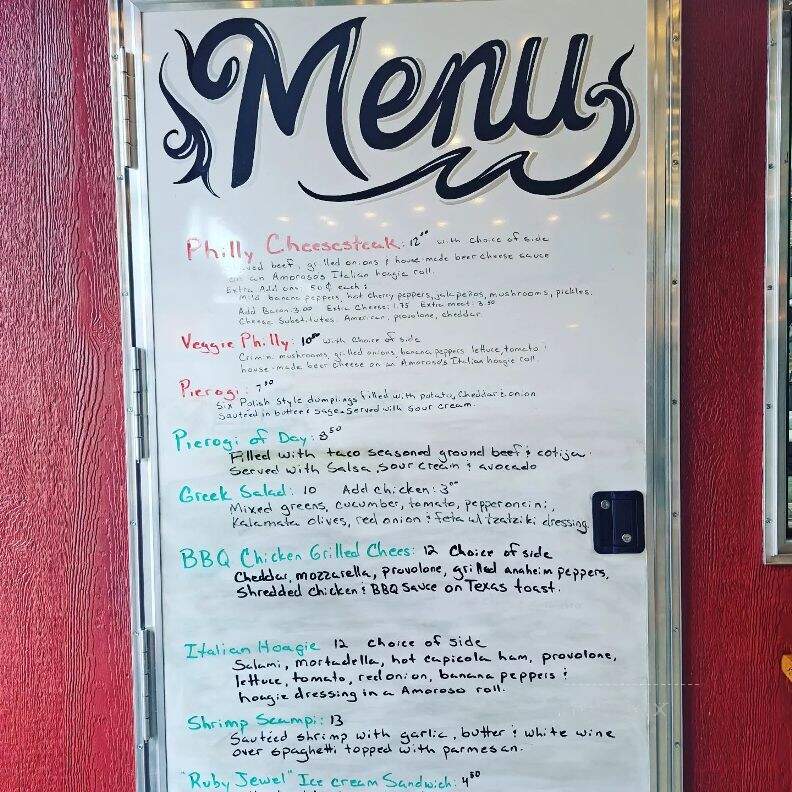 Menu
Philly Cheesesteak: 12⁰⁰ with choice of side
beef, grilled onions & house-made beer cheese sauce
on an Amoroso's Italian hoagie roll.
Extra Add ons: 50¢ each:
Mild banana peppers, hot cherry peppers, jalapeños, mushrooms, pickles.
Add Bacon: 3.00 Extra Cheese: 1.75 Extra meat: 3.50
Cheese Substitutes American, provolone, cheddar
Veggie Philly: 10⁰⁰ with Choice of side
Crimini mushrooms, grilled onions, banana peppers lettuce, tomato &
house-made beer cheese on an Amoroso's Italian hoagie roll
Pierogi: 7⁵⁰
Six Polish style dumplings filled with potato, cheddar & onion
Sautéed in butter & sage. Served with sour cream.
Pierogi of Day: 8⁵⁰
Filled with taco seasoned ground beef & cotija.
Served with Salsa, sour cream & avocado
Greek Salad: 10 Add chicken: 3⁰⁰
Mixed greens, cucumber, tomato, pepperoncini,
Kalamata olives, red onion & feta w/ tzatziki dressing.
BBQ Chicken Grilled Chees: 12 Choice of side
Cheddar, mozzarella, provolone, grilled anaheim peppers,
Shredded chicken & BBQ Sauce on Texas toast.
Italian Hoagie 12 choice of side
Salami, mortadella, hot capicola ham, provolone,
lettuce, tomato, red onion, banana peppers &
hoagie dressing in a Amoroso roll.
Shrimp Scampi: 13
Sautéed shrimp with garlic, butter & white wine
over spaghetti topped with parmesan.
"Ruby Jewel" Ice cream Sandwich: 4⁵⁰